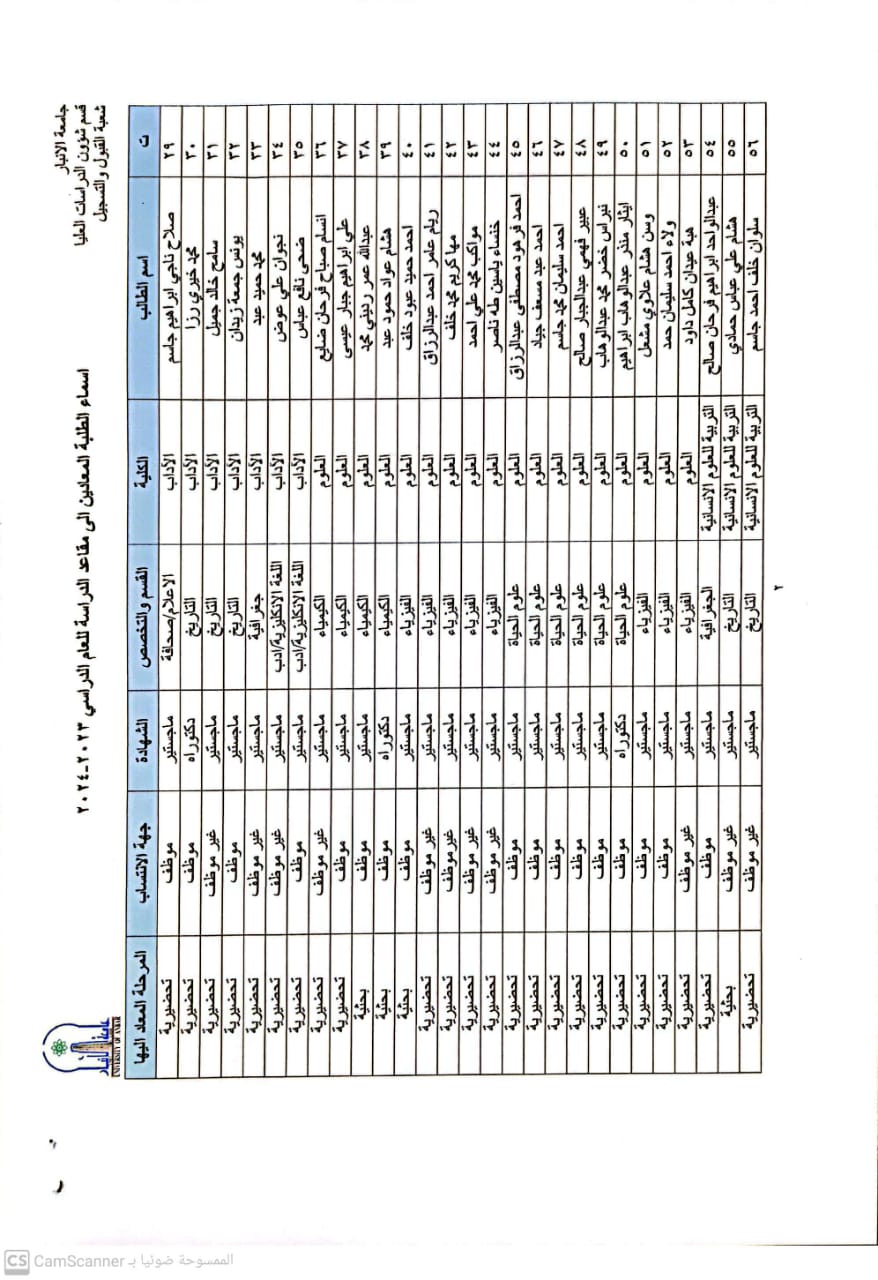 جامعة الانبار
قسم شؤون الدراسات العليا
شعبة القبول والتسجيل
UNIVERSITY OF ANBAR
اسماء الطلبة المعادين الى مقاعد الدراسة للعام الدراسي ٢٠٢٣-٢٠٢٤
ت اسم الطالب الكلية القسم والتخصص الشهادة جهة الانتساب المرحلة المعاد اليها
٢٩ صلاح ناجي ابراهيم جاسم الآداب الاعلام/صحافة ماجستير موظف تحضيرية
٣٠ محمد خيري رزا الآداب التاريخ دكتوراه موظف تحضيرية
٣١ سامح خالد جميل الآداب التاريخ ماجستير غير موظف تحضيرية
٣٢ يونس جمعة زيدان الآداب التاريخ ماجستير موظف تحضيرية
٣٣ محمد حميد عبد الآداب جغرافية ماجستير غير موظف تحضيرية
٣٤ نجوان علي عوض الآداب اللغة الانكليزية/ادب ماجستير غير موظف تحضيرية
٣٥ ضحى نافع عباس الآداب اللغة الانكليزية/ادب ماجستير موظف تحضيرية
٣٦ انسام صباح فرحان ضايع العلوم الكيمياء ماجستير غير موظف تحضيرية
٣٧ علي ابراهيم جبار عيسى العلوم الكيمياء ماجستير موظف تحضيرية
٣٨ عبدالله عمر رديني محمد العلوم الكيمياء ماجستير موظف بحثية
٣٩ هشام عواد حمود عبد العلوم الكيمياء دكتوراه موظف بحثية
٤٠ احمد حميد عبود خلف العلوم الفيزياء ماجستير موظف بحثية
٤١ ريام عامر احمد عبدالرزاق العلوم الفيزياء ماجستير غير موظف تحضيرية
٤٢ مها كريم محمد خلف العلوم الفيزياء ماجستير غير موظف تحضيرية
٤٣ مواكب محمد علي احمد العلوم الفيزياء ماجستير غير موظف تحضيرية
٤٤ خنساء ياسين طه ناصر العلوم الفيزياء ماجستير غير موظف تحضيرية
٤٥ احمد فرهود مصطفى عبدالرزاق العلوم علوم الحياة ماجستير موظف تحضيرية
٤٦ احمد عبد مسعف جياد العلوم علوم الحياة ماجستير موظف تحضيرية
٤٧ احمد سليمان محمد جاسم العلوم علوم الحياة ماجستير موظف تحضيرية
٤٨ عبير فهمي عبدالجبار صالح العلوم علوم الحياة ماجستير موظف تحضيرية
٤٩ نبراس خضر محمد عبدالوهاب العلوم علوم الحياة ماجستير موظف تحضيرية
٥٠ ايثار منذر عبدالوهاب ابراهيم العلوم علوم الحياة دكتوراه موظف تحضيرية
٥١ وسن هشام علاوي مشعل العلوم الفيزياء ماجستير موظف تحضيرية
٥٢ ولاء احمد سليمان حمد العلوم الفيزياء ماجستير موظف تحضيرية
٥٣ هبة عيدان كامل داود العلوم الفيزياء ماجستير غير موظف تحضيرية
٥٤ عبدالواحد ابراهيم فرحان صالح التربية للعلوم الانسانية الجغرافية ماجستير موظف تحضيرية
٥٥ هشام علي عباس حمادي التربية للعلوم الانسانية التاريخ ماجستير غير موظف بحثية
٥٦ سلوان خلف احمد جاسم التربية للعلوم الانسانية التاريخ ماجستير غير موظف تحضيرية
٢
CS CamScanner الممسوحة ضوئيا بـ